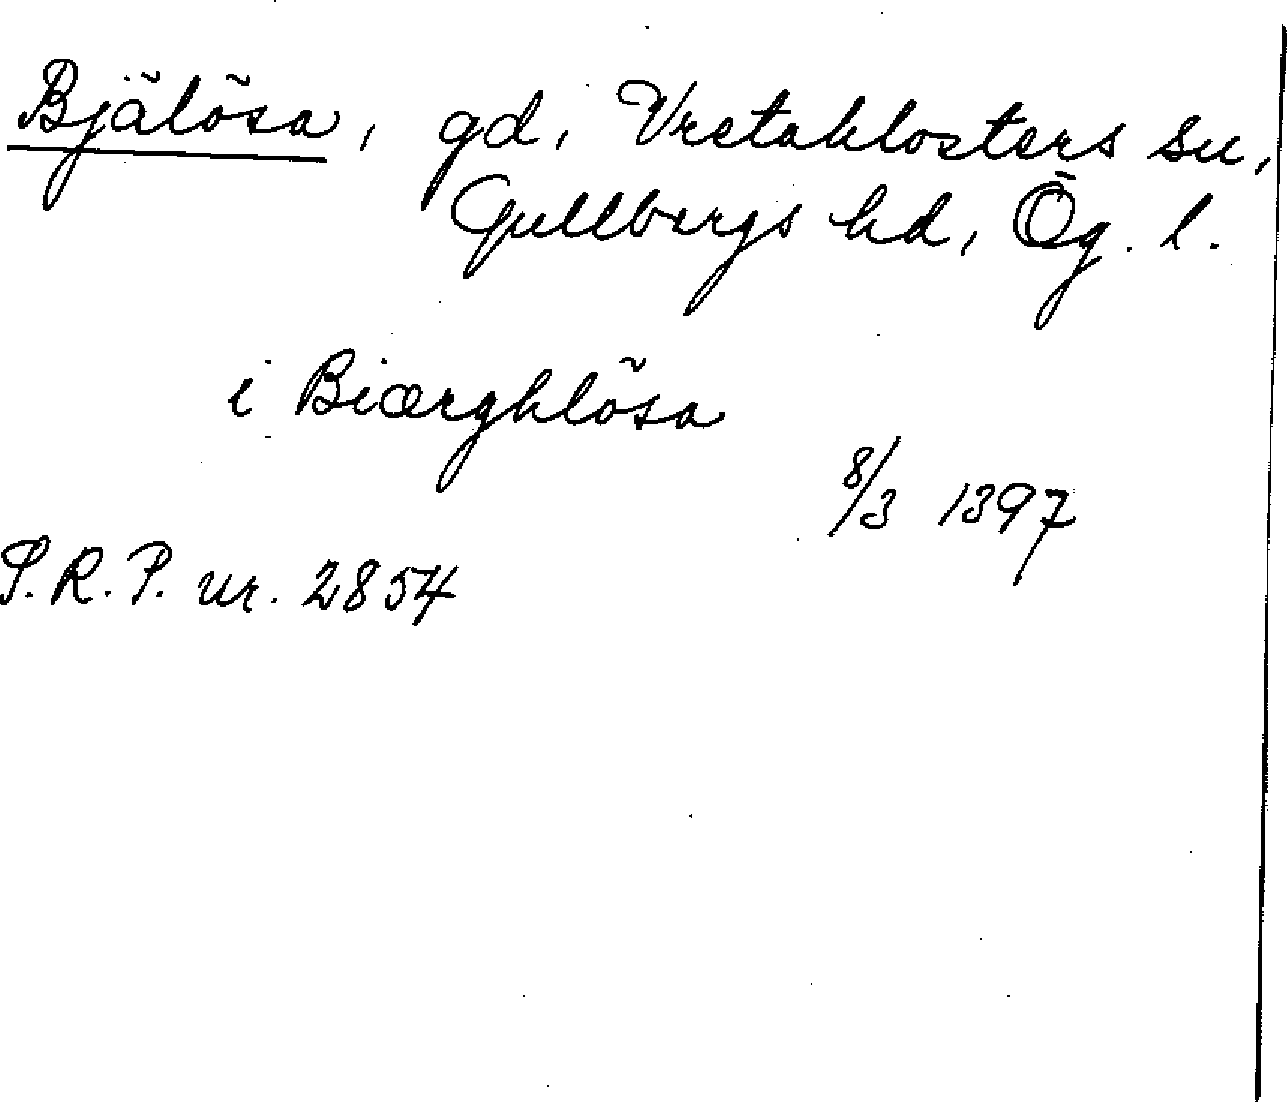 Bjälösa, gd, Vretaklosters sn,
Gullbergs hd, Ög. l.
i Biærghlösa
8/3 1397
S.R.P. nr. 2854